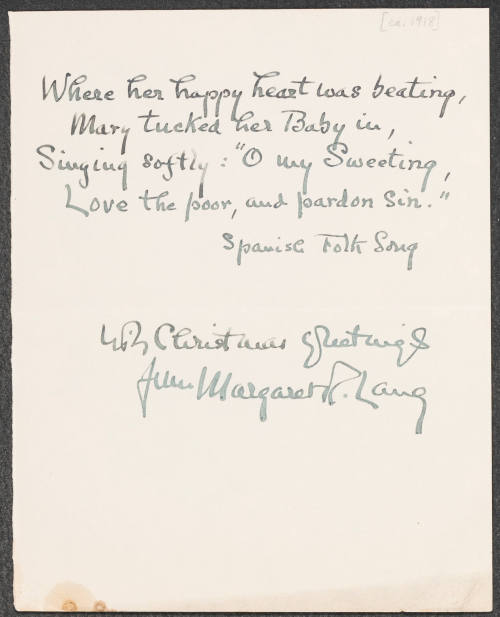 [ca. 1918]
Where her happy heart was beating,
Mary tucked her Baby in,
Singing softly: "O my Sweeting,
Love the poor, and pardon Sin."
Spanish Folk Song
With Christmas greetings
from Margaret R. Lang